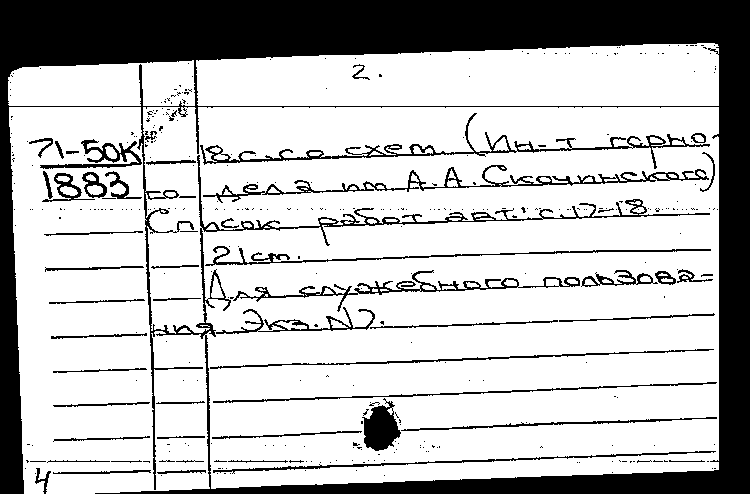 2.
71-50K 18 с. со схем. (Ин-т горно-
1883 го дела им А.А. Скочинского)
Список работ авт.: с. 17-18.
21 см.
Для служебного пользова=
ния. Экз. N
4